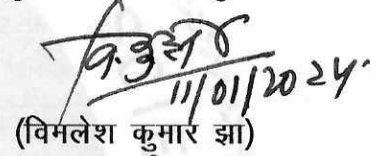 वि. कु. झा
11/01/2024
(विमलेश कुमार झा)